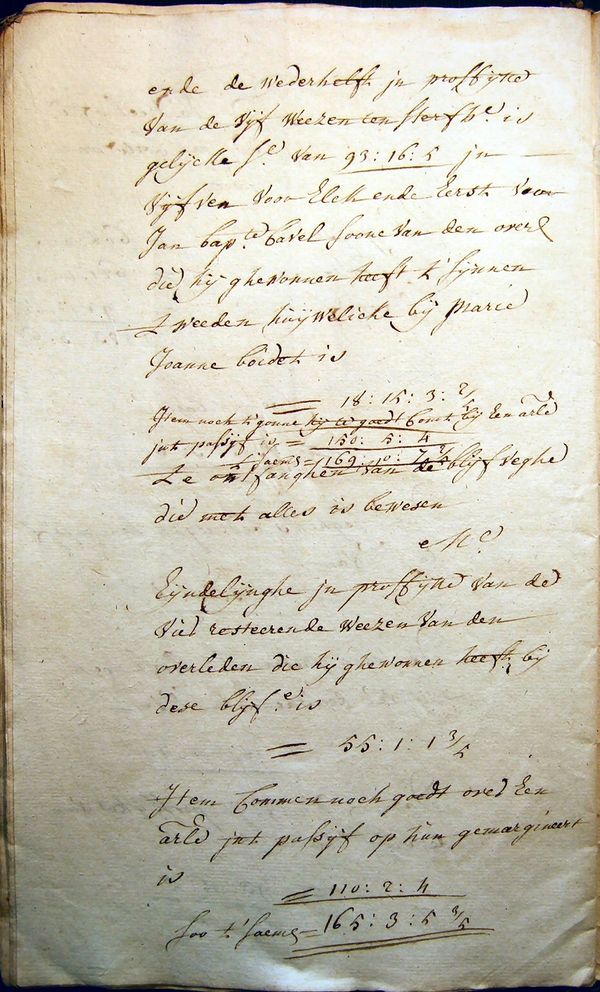 ende de wederhelft jn proffijtte
van de vijf weezen ten sterfh.e is
gelycke s.e van 93:16:5 jn
vijfven voor Elck ende Eerst voor
Jan bap.te bavel soone van den overl
die hij ghewonnen heeft t' sijnnen
tweeden huijwelicke bij Marie
Joanne boidet is
= 18:15:3:2/5
Jtem noch t'gonne hij te goedt Comt bij Een arle
jnt passijf is = 150:5:4
t' saems = 169:10:7 2/5
te ontfanghen van de blijfveghe
die met alles is bewesen
Me
Eijndelijnghe jn proffijtte van de
vier resteerende weezen van den
overleden die hij ghewonnen heeft bij
dese blijf.e is
= 55:1:1 3/5
Jtem Commen noch goedt over Een
arle jnt passijf op hun gemargineert
is
= 110:2:4
soo t' saems = 165:3:5 3/5